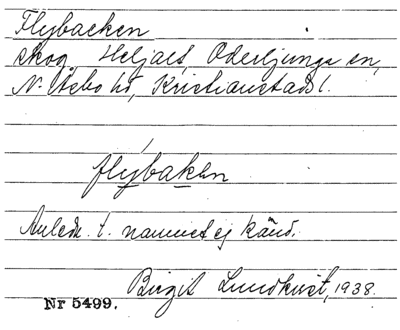 Flybacken
skog, Heljalt, Oderljunga sn,
N. Åsbo hd, Kristianstads l.
flýbakən
Anledn. t. namnet ej känd.
Birgit Lundkvist, 1938.
Nr 5499.